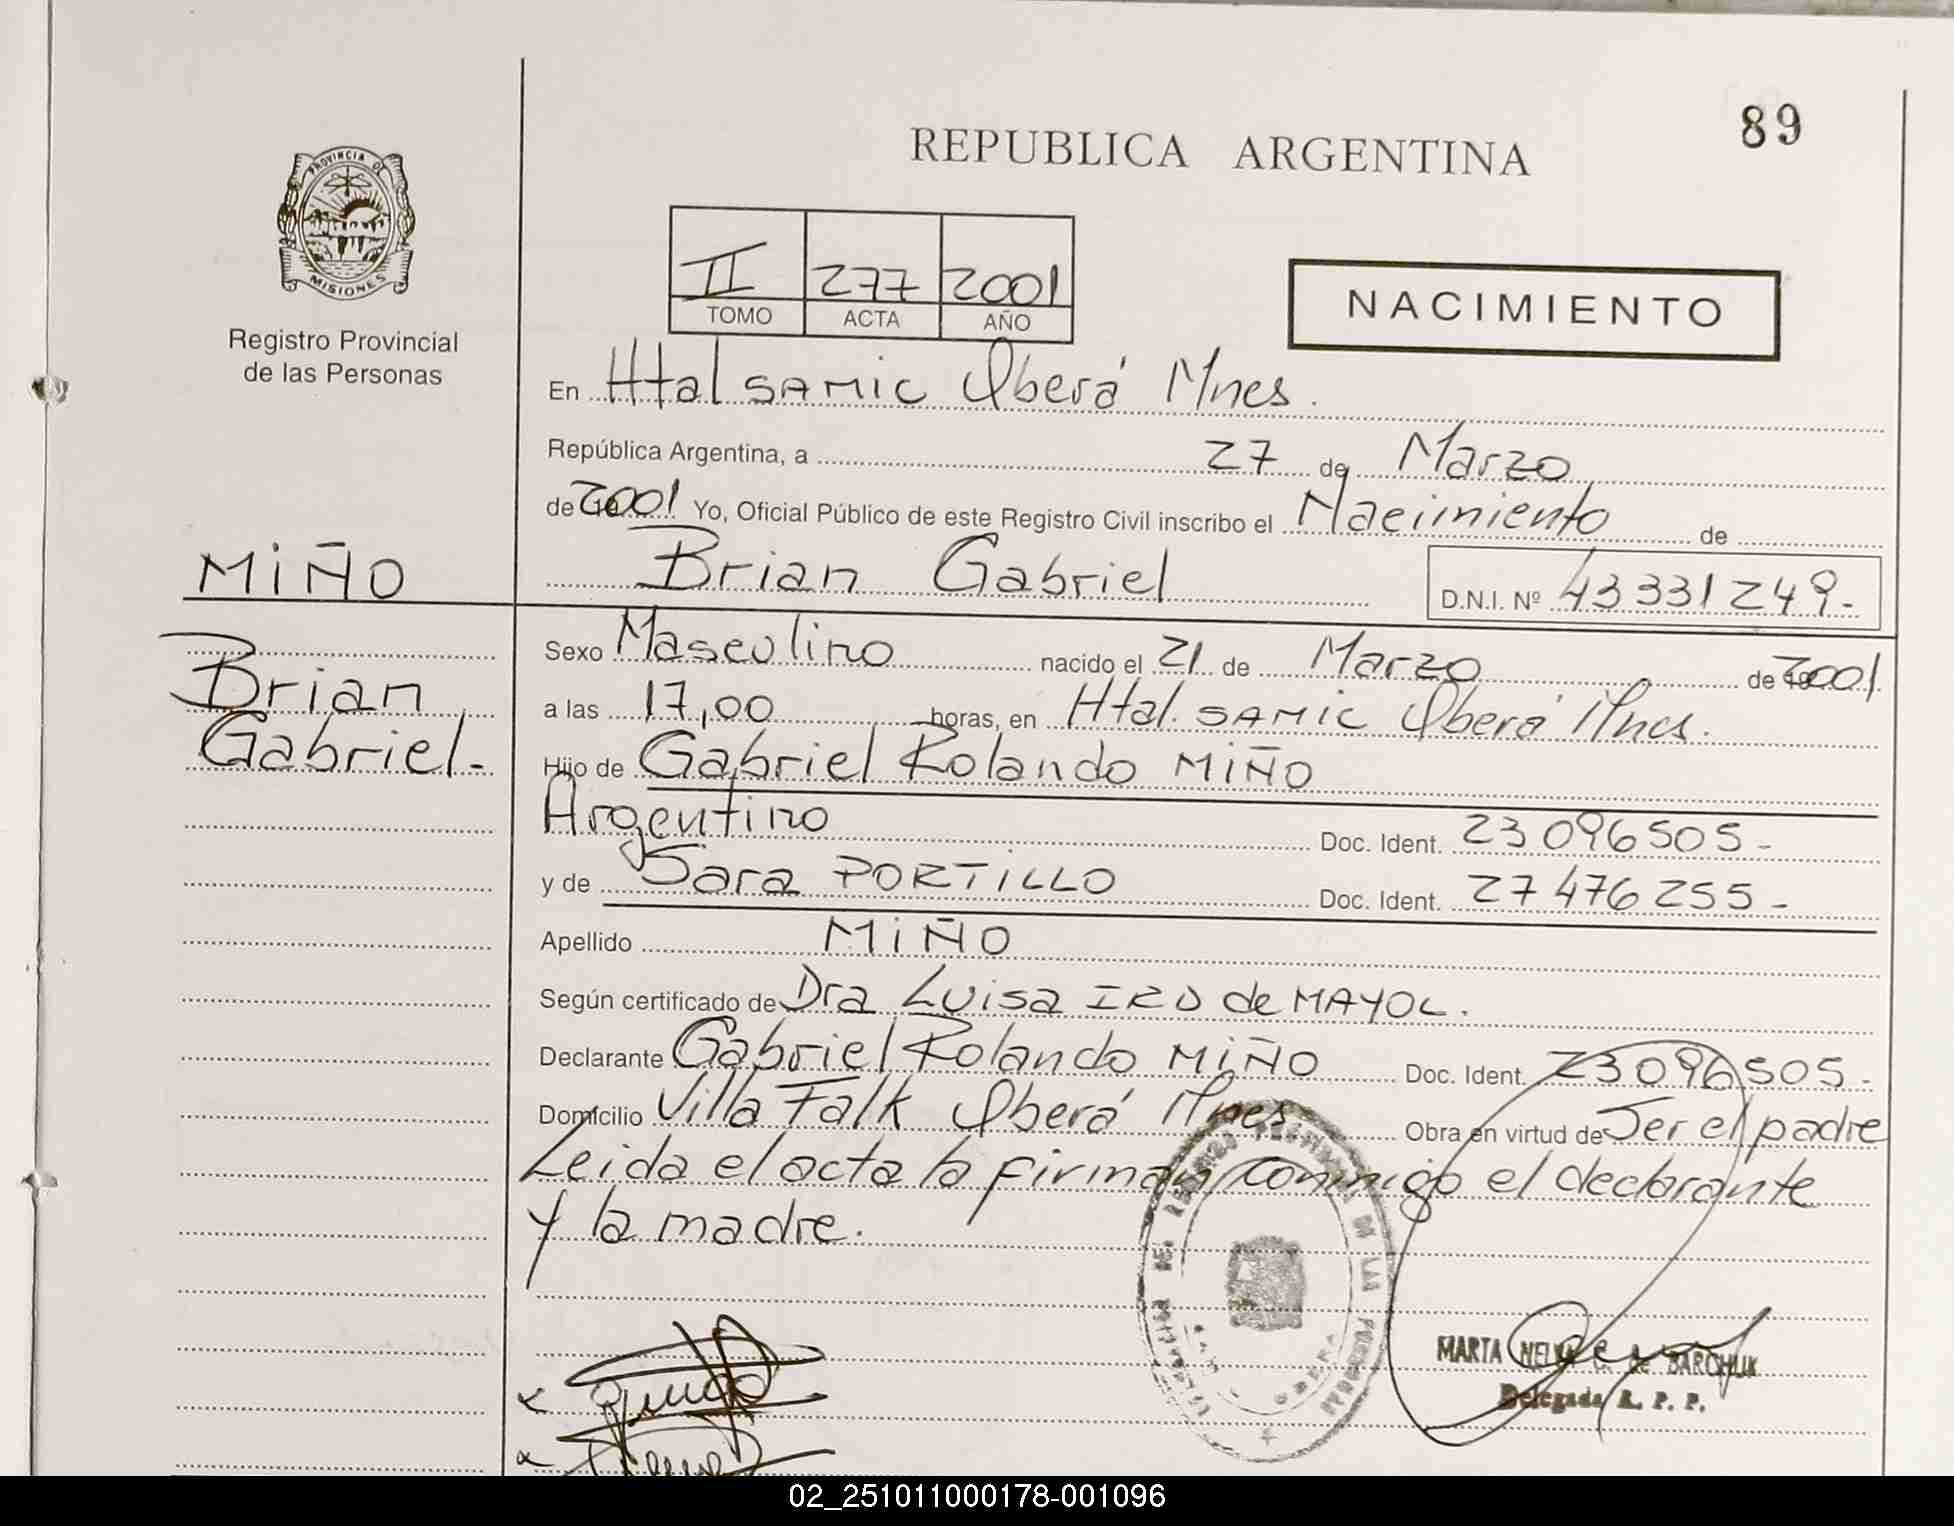 89
REPUBLICA ARGENTINA
PROVINCIA DE
MISIONES
Registro Provincial
de las Personas
II 277 2001
TOMO ACTA AÑO
NACIMIENTO
En Htal SAMIC Oberá Mnes.
República Argentina, a 27 de Marzo
de 2001 Yo, Oficial Público de este Registro Civil inscribo el Nacimiento de
MIÑO
Brian Gabriel D.N.I. Nº 43331249-
Brian
Gabriel-
Sexo Masculino nacido el 21 de Marzo de 2001
a las 17,00 horas, en Htal. SAMIC Oberá Mnes.
Hijo de Gabriel Rolando MIÑO
Argentino Doc. Ident. 23096505-
y de Sara PORTILLO Doc. Ident. 27476255-
Apellido MIÑO
Según certificado de Dra Luisa IRO de MAYOL.
Declarante Gabriel Rolando MIÑO Doc. Ident. 23096505-
Domicilio Villa Falk Oberá Mnes Obra en virtud de Ser el padre
Leida el acta la firman conmigo el declarante
y la madre.
MARTA de BARCHUK
Delegada R. P. P.
02_251011000178-001096